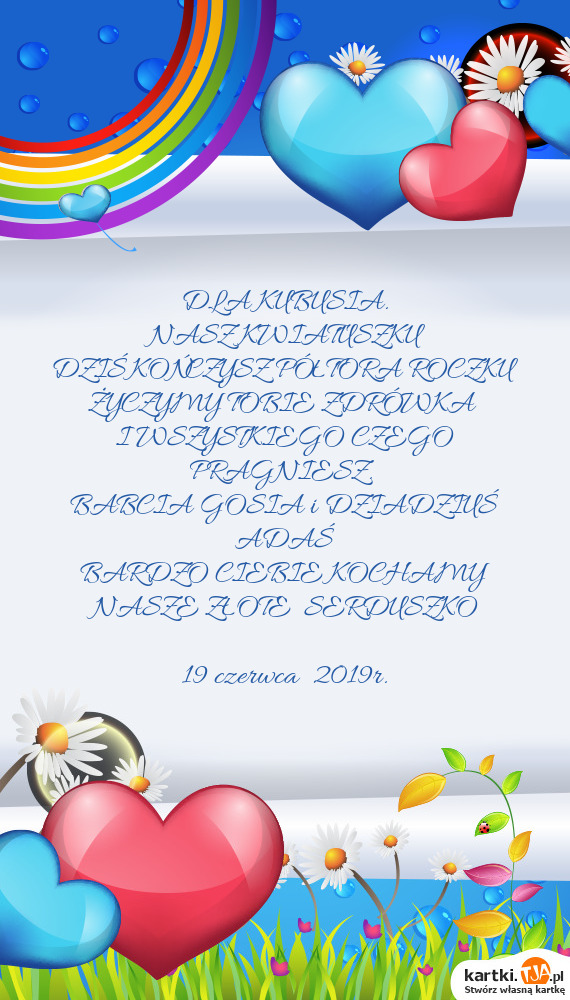 DLA KUBUSIA.
NASZ KWIATUSZKU
DZIŚ KOŃCZYSZ PÓŁTORA ROCZKU
ŻYCZYMY TOBIE ZDRÓWKA
I WSZYSTKIEGO CZEGO
PRAGNIESZ
BABCIA GOSIA i DZIADZIUŚ
ADAŚ
BARDZO CIEBIE KOCHAMY
NASZE ZŁOTE SERDUSZKO
19 czerwca 2019r.
kartki.TJA.pl
Stwórz własną kartkę